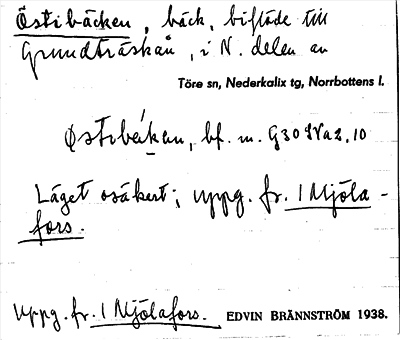 Östibäcken, bäck, biflöde till
Grundträskån, i N. delen av
Töre sn, Nederkalix tg, Norrbottens l.
bf. m.
Läget osäkert; uppg. fr. 1 Mjöla-
fors.
Uppg. fr. 1 Mjölafors. EDVIN BRÄNNSTRÖM 1938.